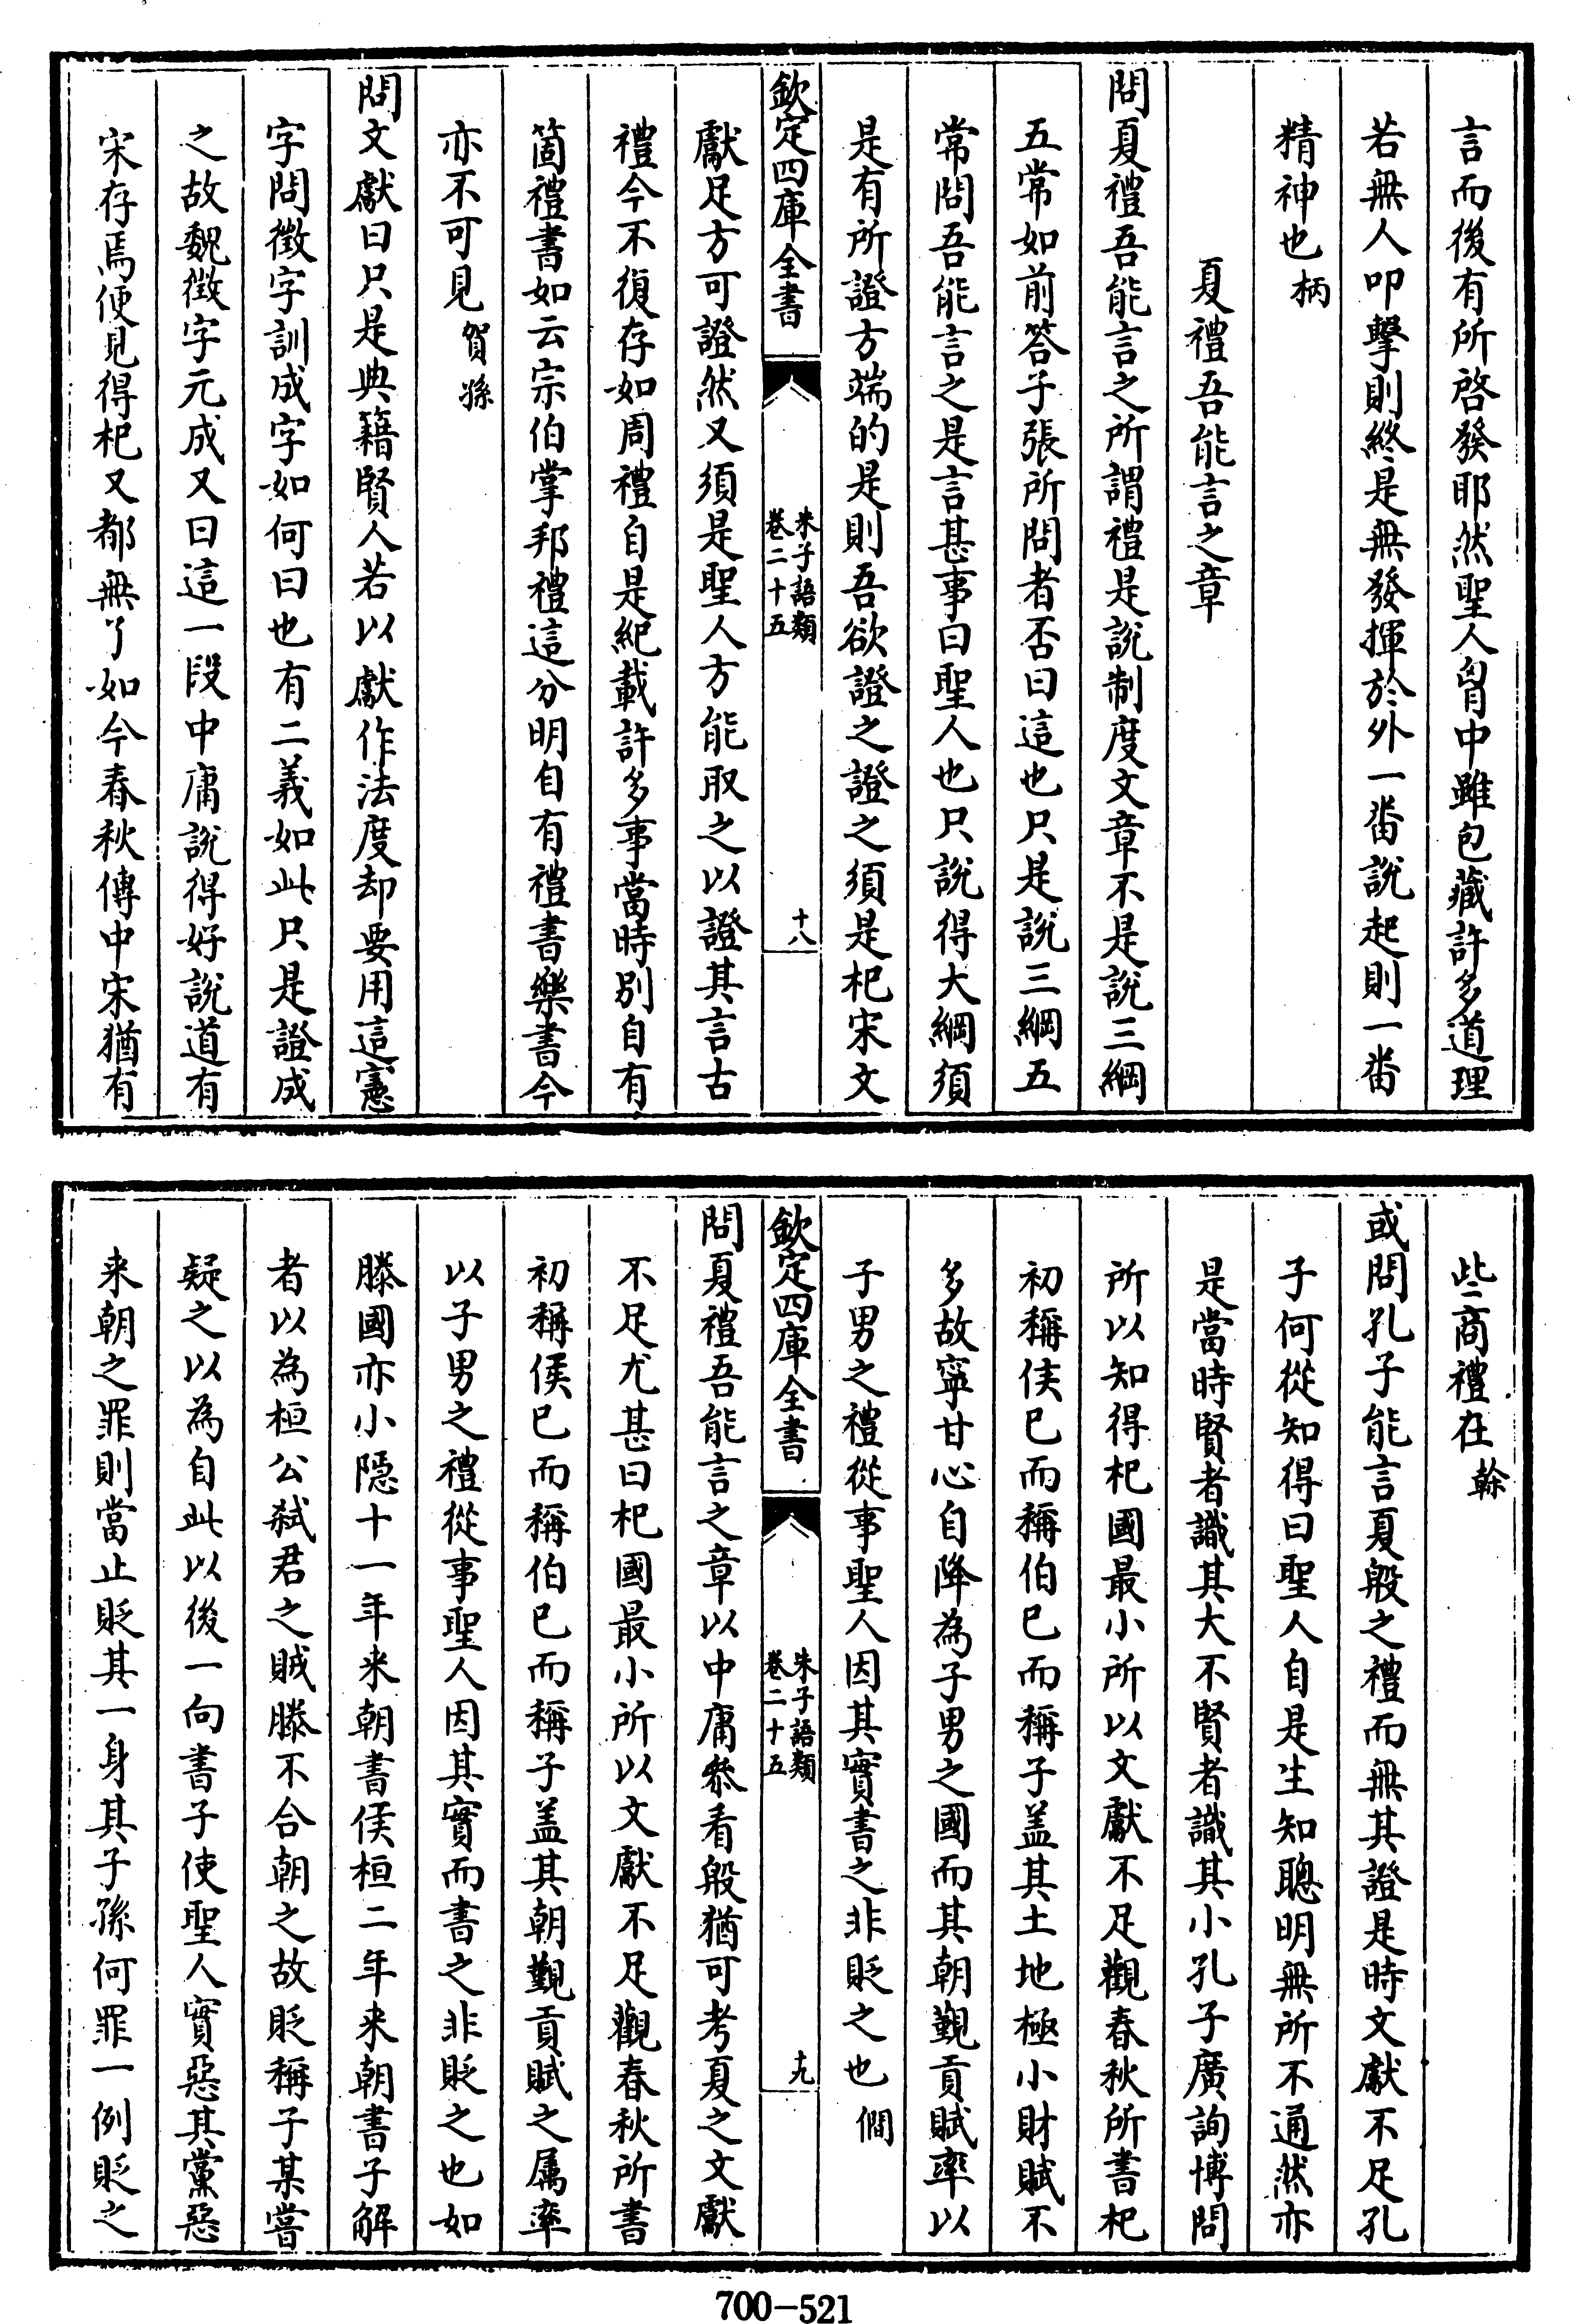 言而後有所啓發耶然聖人胷中雖包藏許多道理
若無人叩擊則終是無發揮於外一畨說起則一畨
精神也柄
夏禮吾能言之章
問夏禮吾能言之所謂禮是說制度文章不是說三綱
五常如前答子張所問者否曰這也只是說三綱五
常問吾能言之是言甚事曰聖人也只說得大綱須
是有所證方端的是則吾欲證之證之須是杞宋文
欽定四庫全書
朱子語類
卷二十五
十八
獻足方可證然又須是聖人方能取之以證其言古
禮今不復存如周禮自是紀載許多事當時別自有
箇禮書如云宗伯掌邦禮這分明自有禮書樂書今
亦不可見賀孫
問文獻曰只是典籍賢人若以獻作法度却要用這憲
字問徵字訓成字如何曰也有二義如此只是證成
之故魏徵字元成又曰這一段中庸說得好說道有
宋存焉便見得杞又都無了如今春秋傳中宋猶有
些商禮在榦
或問孔子能言夏殷之禮而無其證是時文獻不足孔
子何從知得曰聖人自是生知聰明無所不通然亦
是當時賢者識其大不賢者識其小孔子廣詢博問
所以知得杞國最小所以文獻不足觀春秋所書杞
初稱侯已而稱伯已而稱子盖其土地極小財賦不
多故寧甘心自降為子男之國而其朝覲貢賦率以
子男之禮從事聖人因其實書之非貶之也僩
欽定四庫全書
朱子語類
卷二十五
十九
問夏禮吾能言之章以中庸叅看殷猶可考夏之文獻
不足尤甚曰杞國最小所以文獻不足觀春秋所書
初稱侯已而稱伯已而稱子盖其朝覲貢賦之屬率
以子男之禮從事聖人因其實而書之非貶之也如
滕國亦小隱十一年来朝書侯桓二年来朝書子解
者以為桓公弑君之賊滕不合朝之故貶稱子某嘗
疑之以為自此以後一向書子使聖人實惡其黨惡
来朝之罪則當止貶其一身其子孫何罪一例貶之
700-521